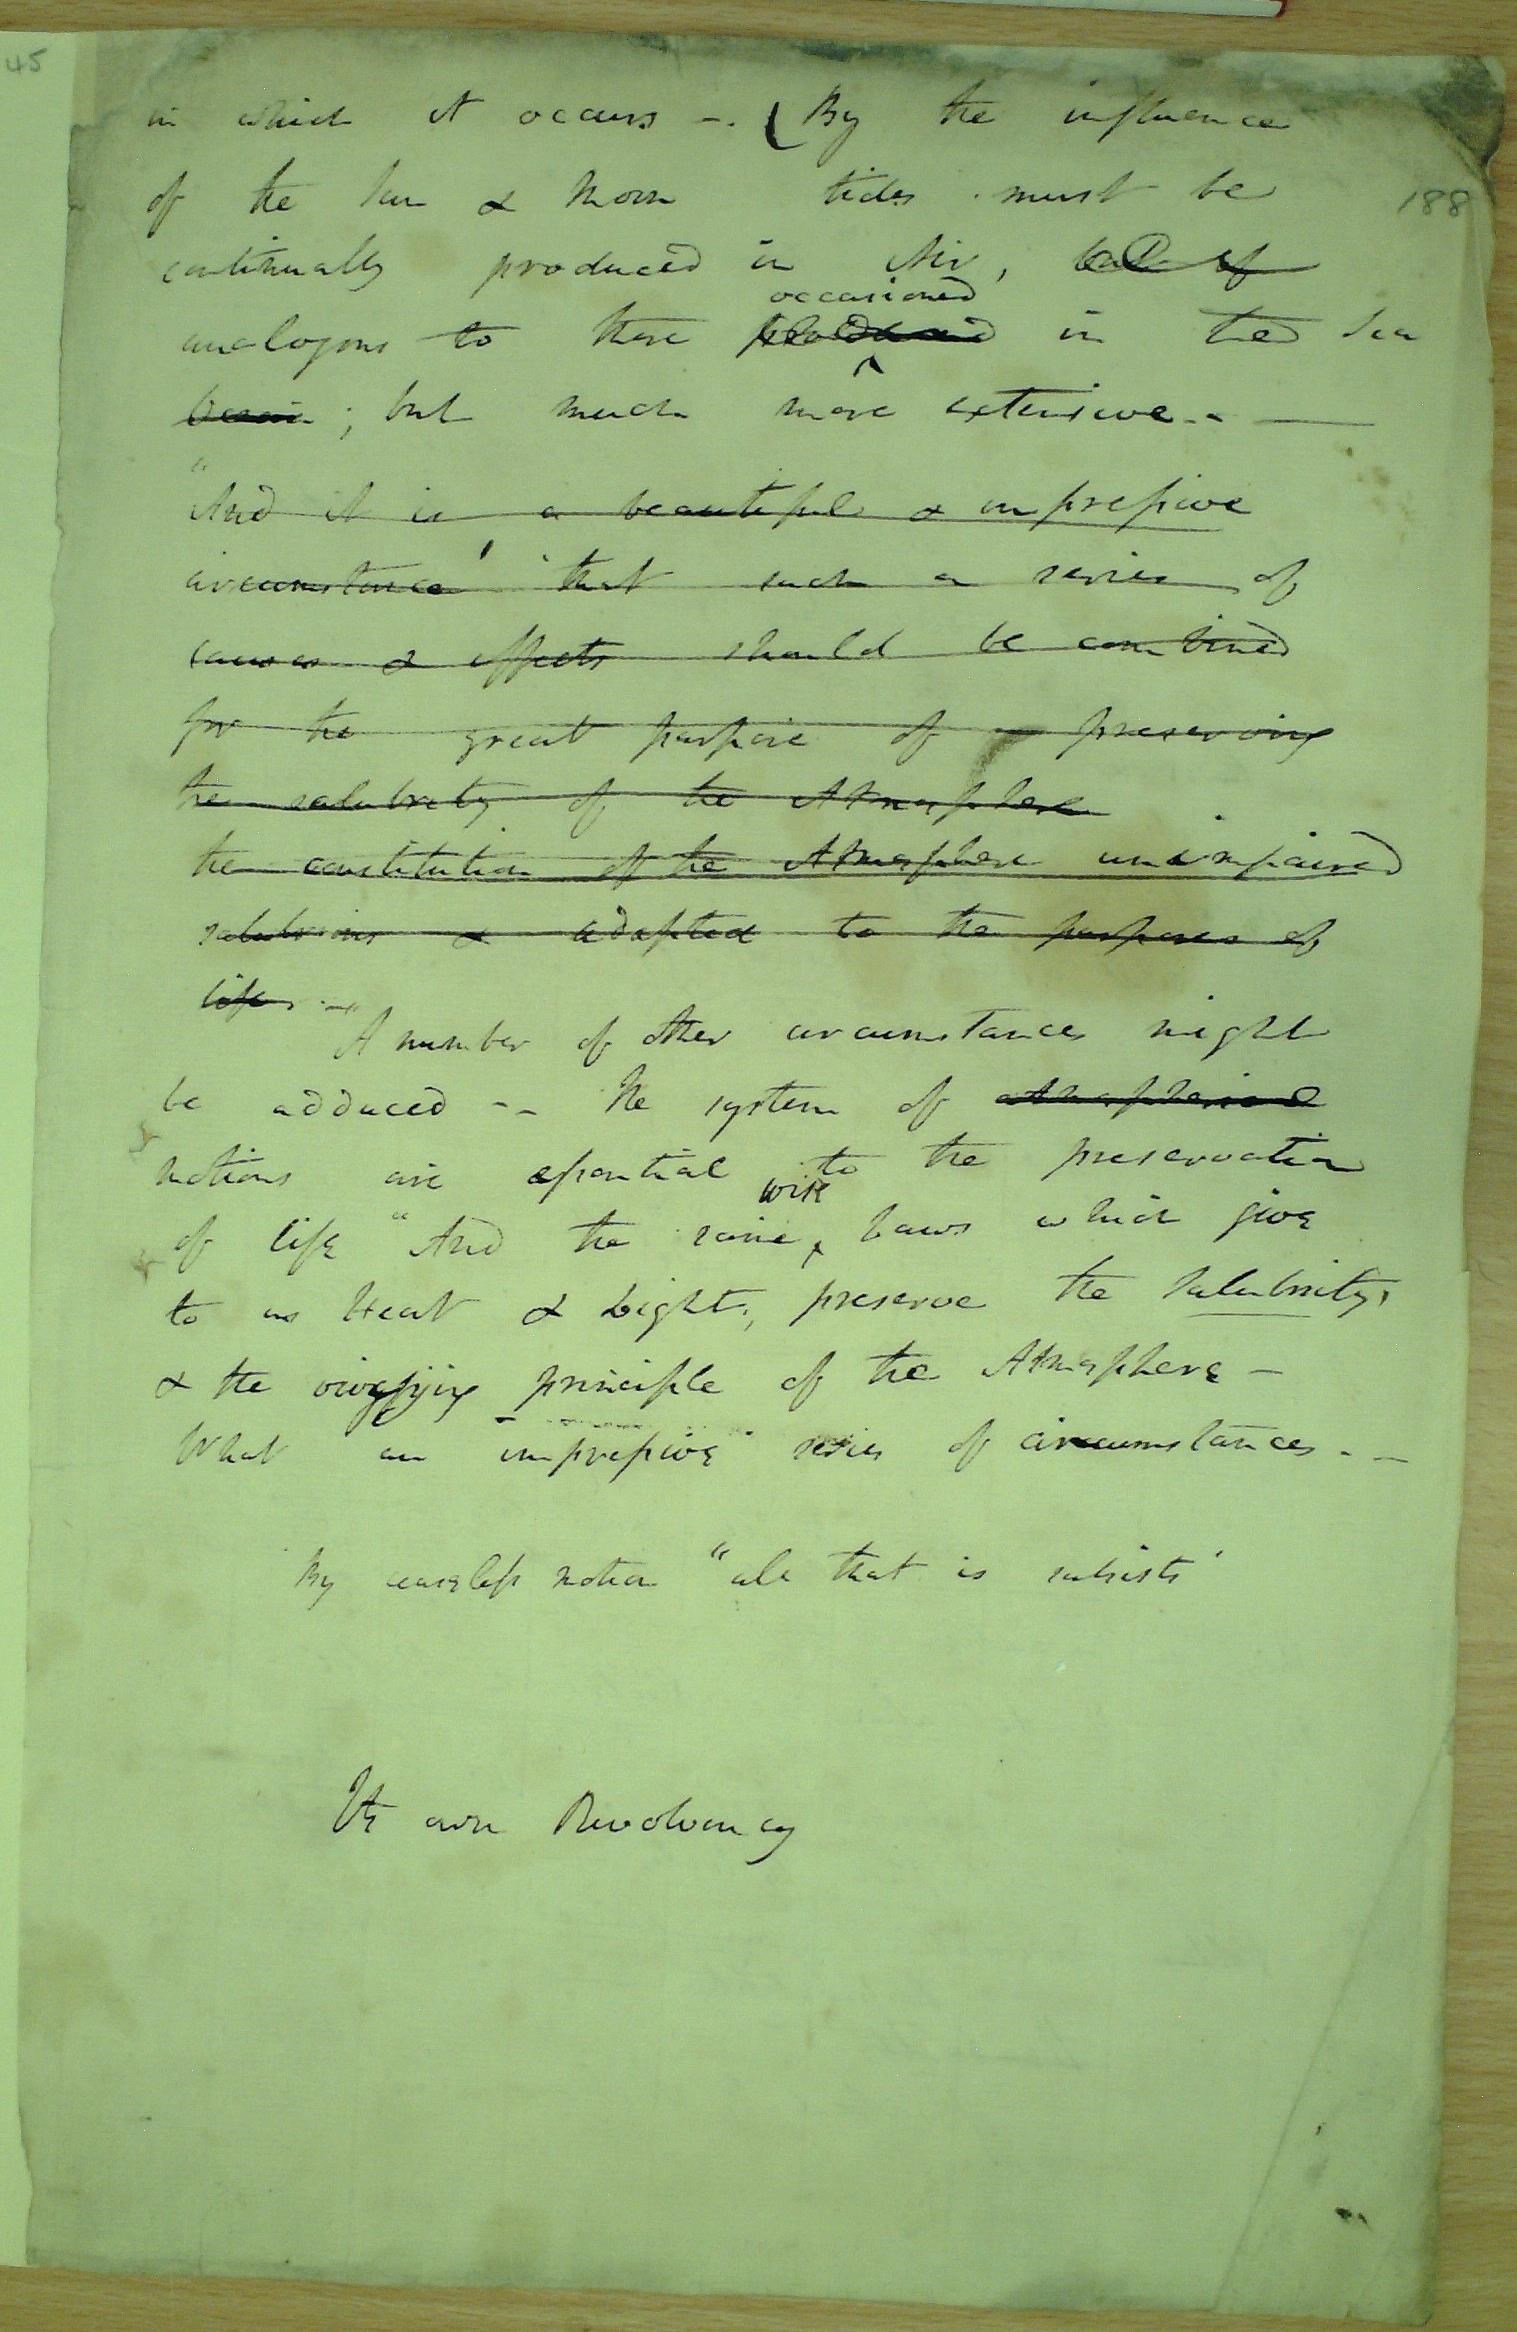 45
in which it occurs -. ( By the influence
of the Sun & Moon tides must be
188
continually produced in Air,
occasioned
analogous to those produced in the Sea
; but much more extensive - -
"And it is a beautiful & impressive
circumstance' that such a series of
causes & effects should be combined
for the great purpose of preserving
the salubrity of the Atmosphere
the constitution of the Atmosphere unimpaired
salubrious & adapted to the purposes of
life -"
A number of other circumstances might
be adduced - - The system of atmospherical
motions are essential to the preservation
wise
of life "And the same Laws which give
to us Heat & Light; preserve the salubrity,
& the vivifying principle of the Atmosphere -
What an impressive series of circumstances - -
By ceaseless motion "all that is subsists'
Its own Revolvency